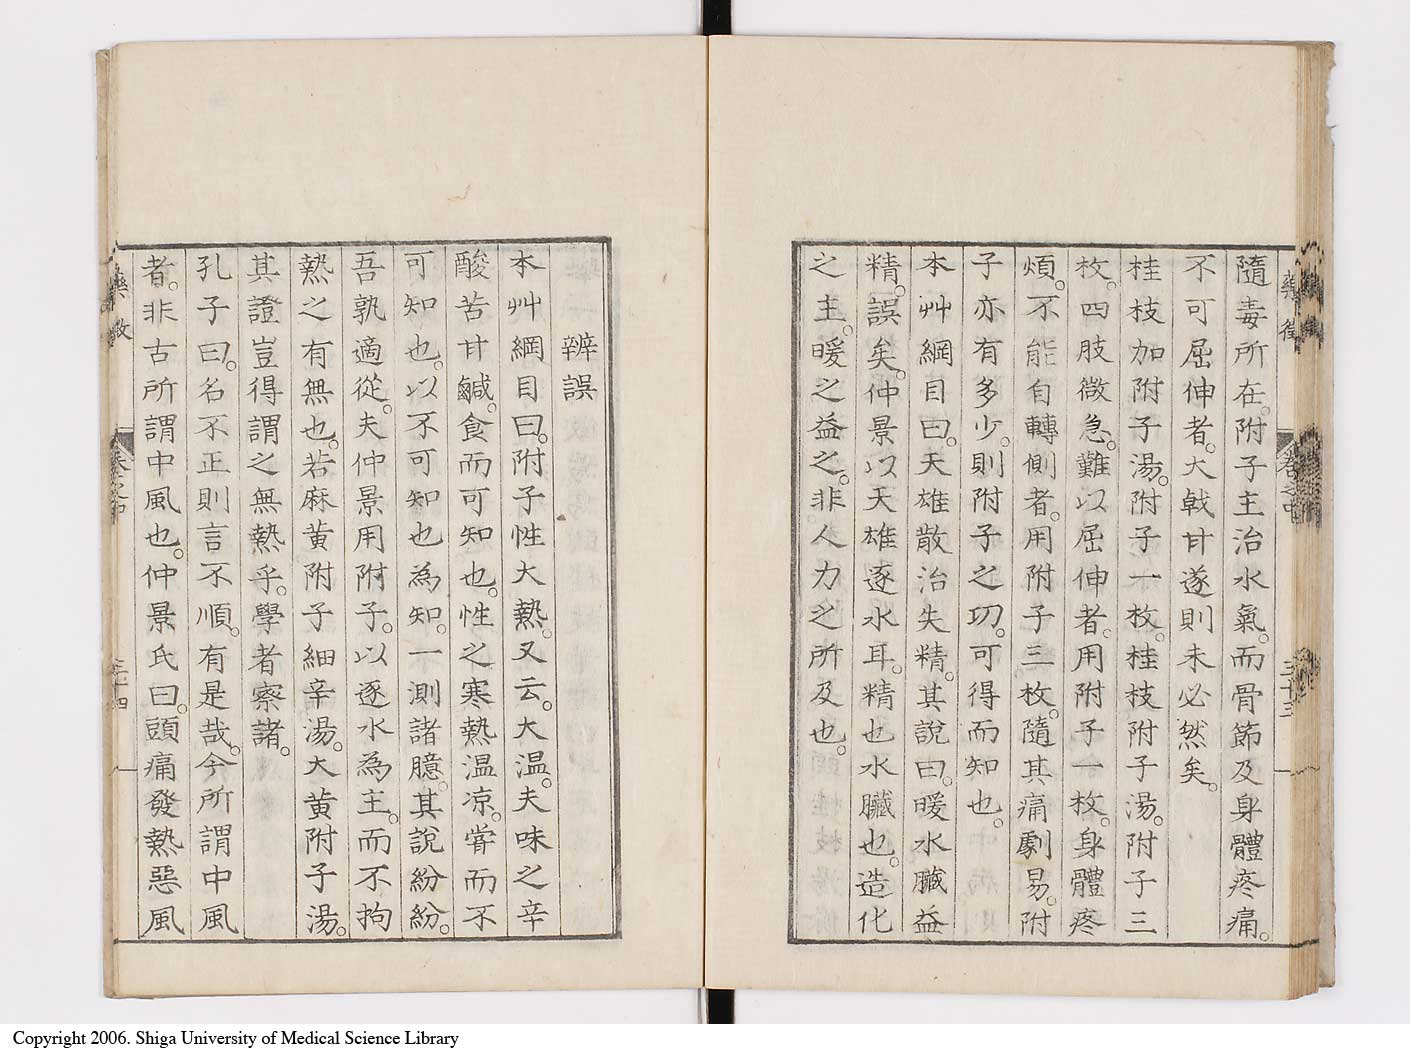 藥徴 卷之中 三十三
隨毒所在。附子主治水氣。而骨節及身體疼痛。
不可屈伸者。大戟甘遂則未必然矣。
桂枝加附子湯。附子一枚。桂枝附子湯。附子三
枚。四肢微急。難以屈伸者。用附子一枚。身體疼
煩。不能自轉側者。用附子三枚。隨其痛劇易。附
子亦有多少。則附子之功。可得而知也。
本艸綱目曰。天雄散治失精。其說曰。暖水臟益
精。誤矣。仲景以天雄逐水耳。精也水臟也。造化
之主。暖之益之。非人力之所及也。
辨誤
本艸綱目曰。附子性大熱。又云。大温。夫味之辛
酸苦甘鹹。食而可知也。性之寒熱温凉。嘗而不
可知也。以不可知也為知。一測諸臆。其說紛紛。
吾孰適從。夫仲景用附子。以逐水為主。而不拘
熱之有無也。若麻黄附子細辛湯。大黄附子湯。
其證豈得謂之無熱乎。學者察諸。
孔子曰。名不正則言不順。有是哉。今所謂中風
者。非古所謂中風也。仲景氏曰。頭痛發熱惡風
藥徴 卷之中 三十四
Copyright 2006. Shiga University of Medical Science Library